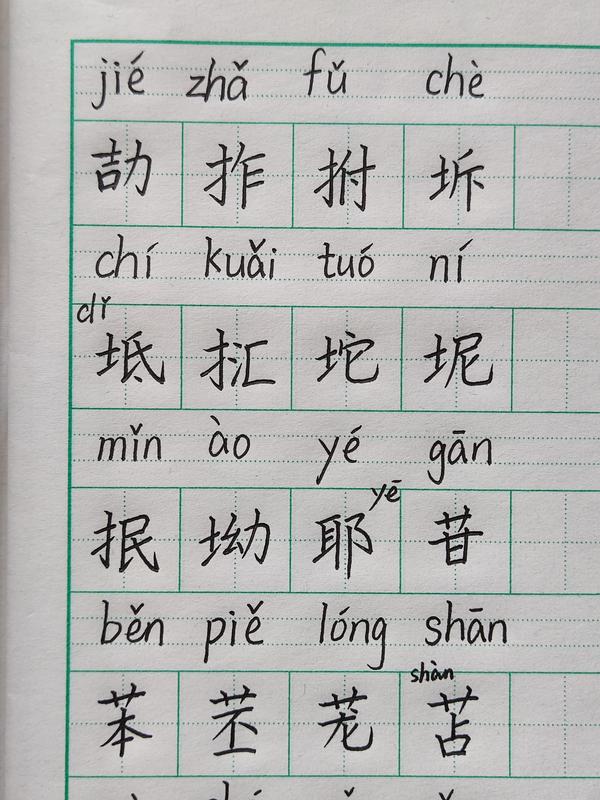 jié zhǎ fǔ chè
劼 拃 拊 坼
chí kuǎi tuó ní
dǐ
坻 㧟 坨 坭
mǐn ào yé gān
yē
抿 坳 耶 苷
běn piě lóng shān
shàn
苯 苤 茏 苫